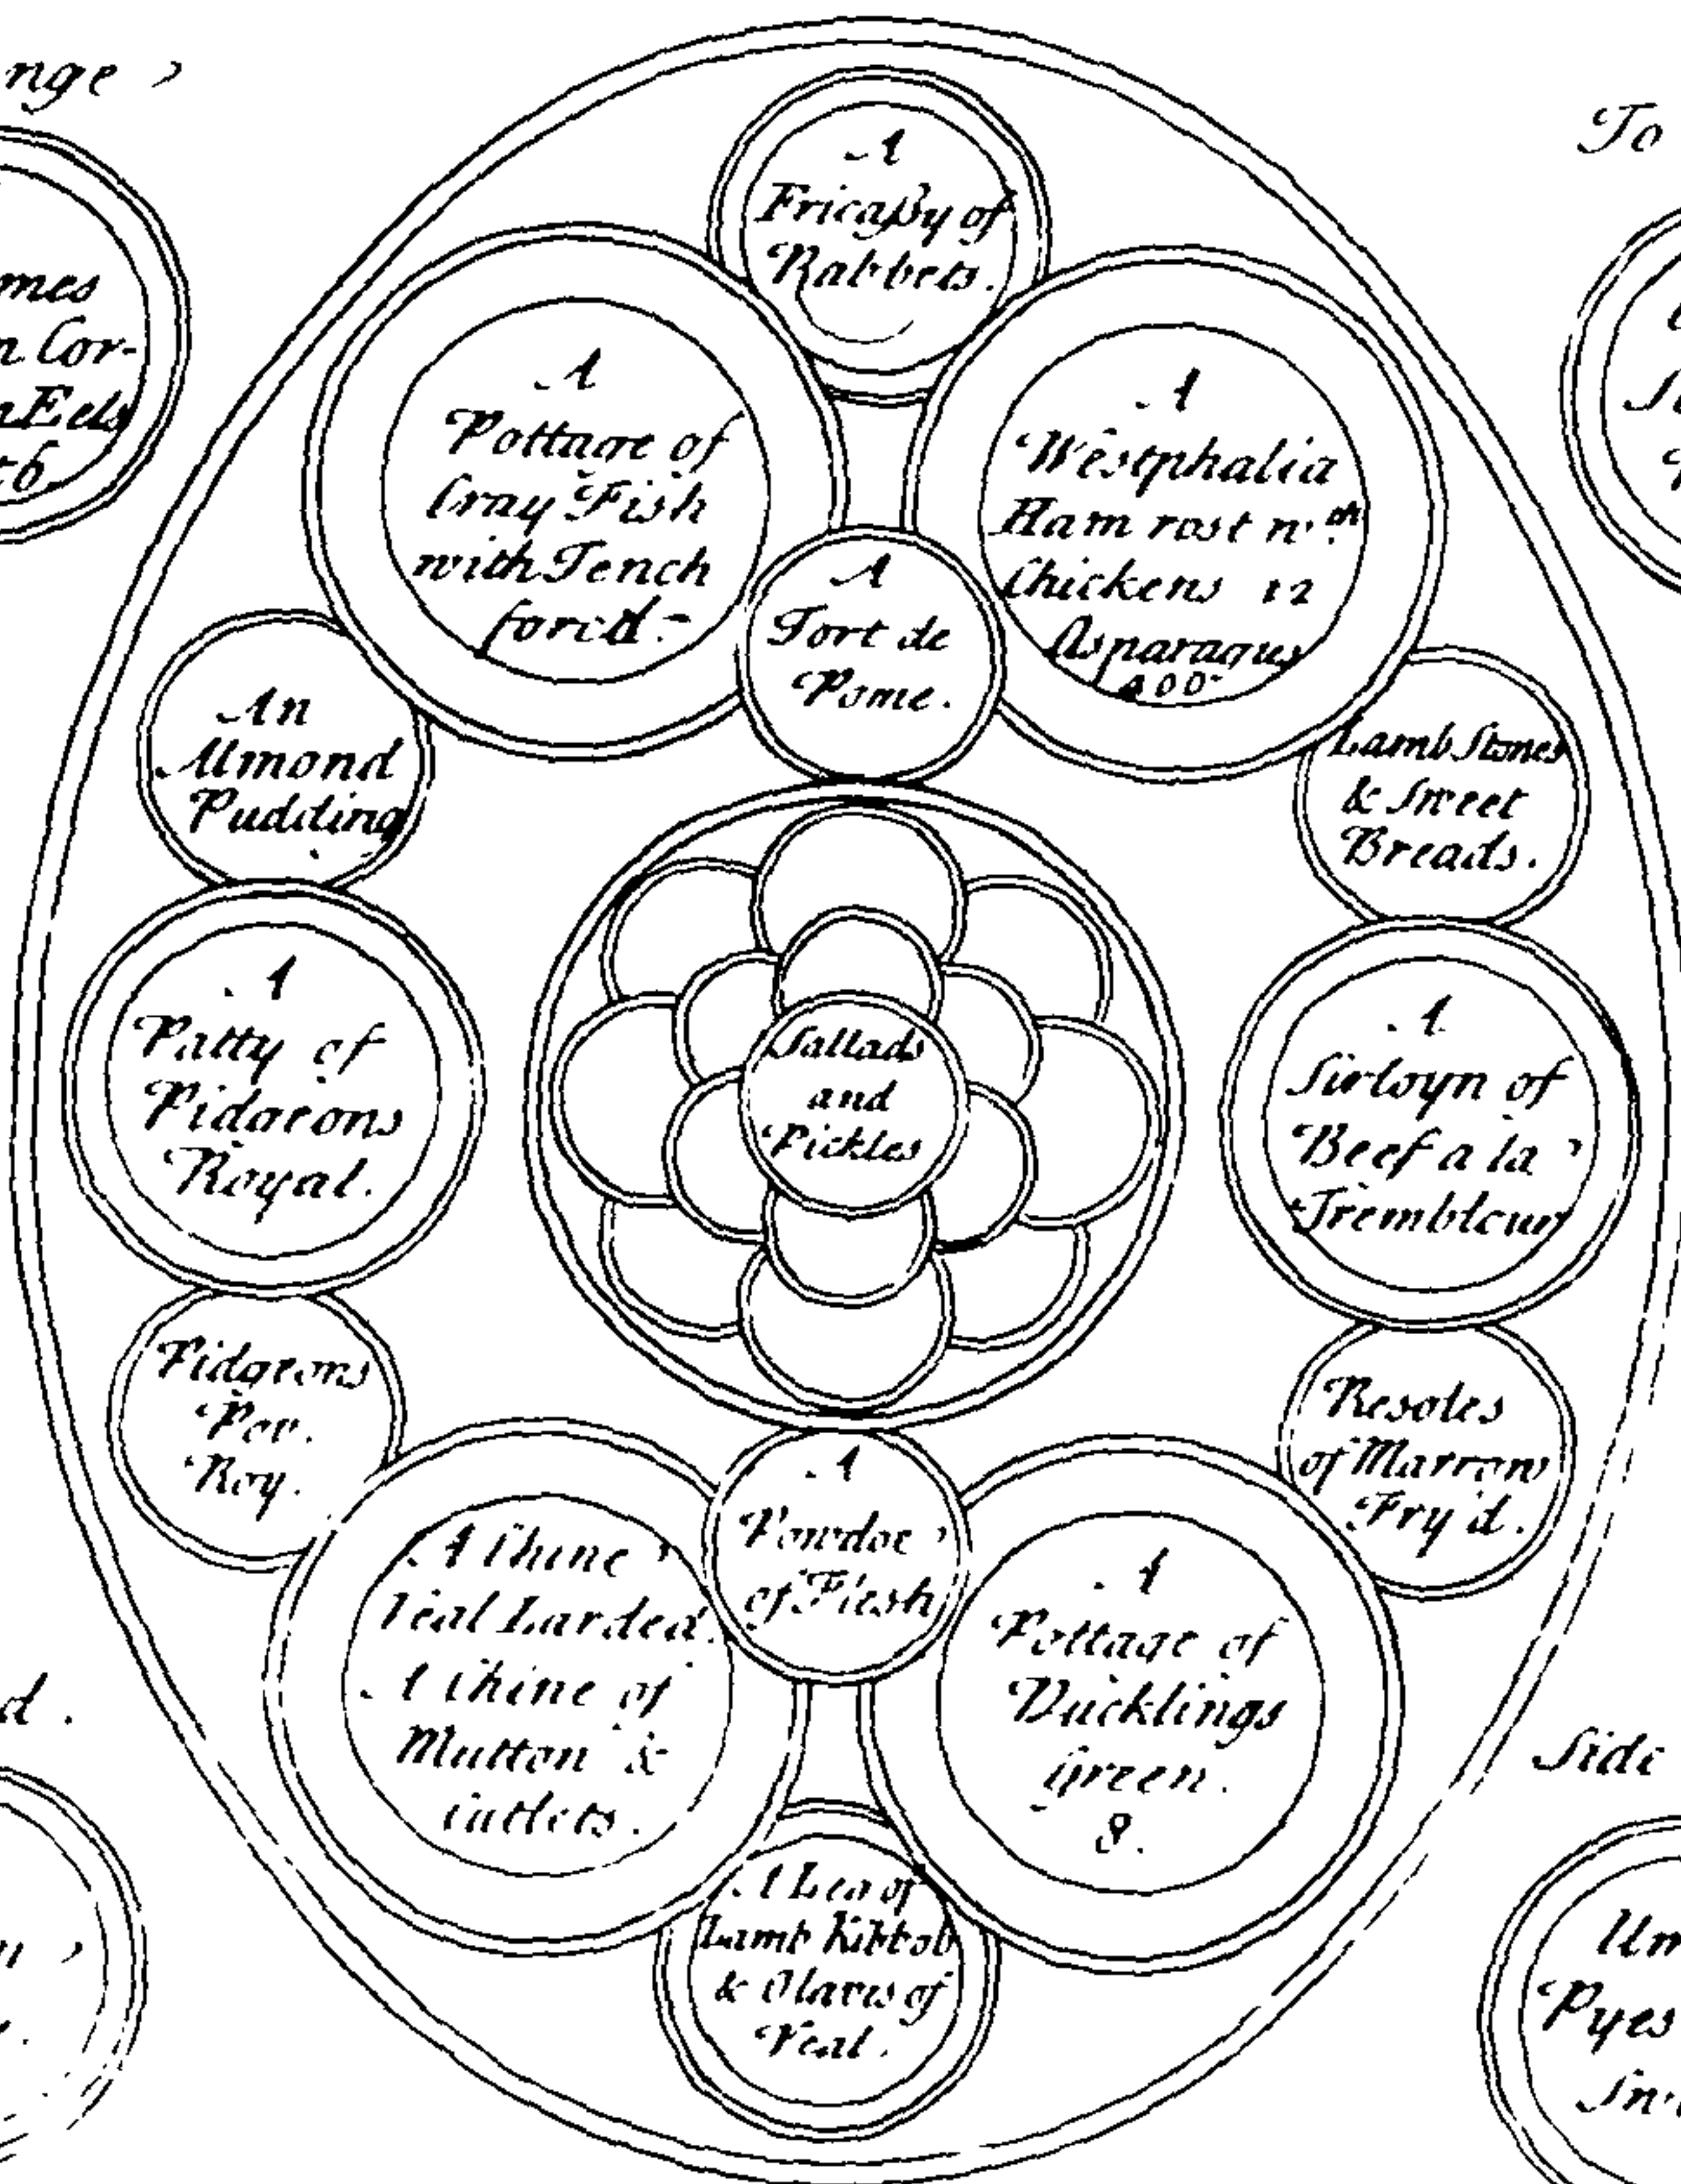 nge
To
A
Fricaßy of
Rabbets.
mes
n Cor-
Eels
A
Pottage of
Cray Fish
with Tench
forcd
A
Westphalia
Ham rost wth
Chickens 12
Asparagus
400
A
Tort de
Pome.
An
Almond
Pudding
Lamb Stones
& Sweet
Breads.
A
Patty of
Pidgeons
Royal.
Sallads
and
Pickles
A
Sirloyn of
Beef a la
Trembleur
Pidgeons
Roy.
Resoles
of Marrow
Fry'd.
A
of Flesh
A Chine
Veal Larded.
A Chine of
Mutton &
Cutlets.
A
Pottage of
Ducklings
Green.
8.
d.
Side
A Leg of
Lamb Kibbob
& Olaves of
Veal.
Um
Pyes